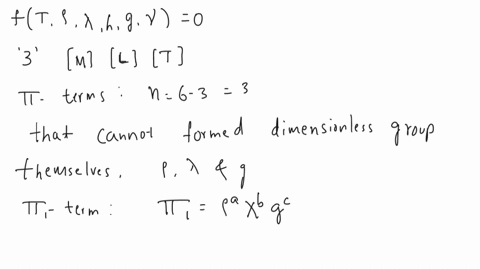 f(T, ρ, λ, h, g, ν) = 0
'3' [M] [L] [T]
π- terms : n = 6-3 = 3
that cannot formed dimensionless group
themselves. ρ, λ & g
π₁- term : π₁ = ρᵃ λᵇ gᶜ